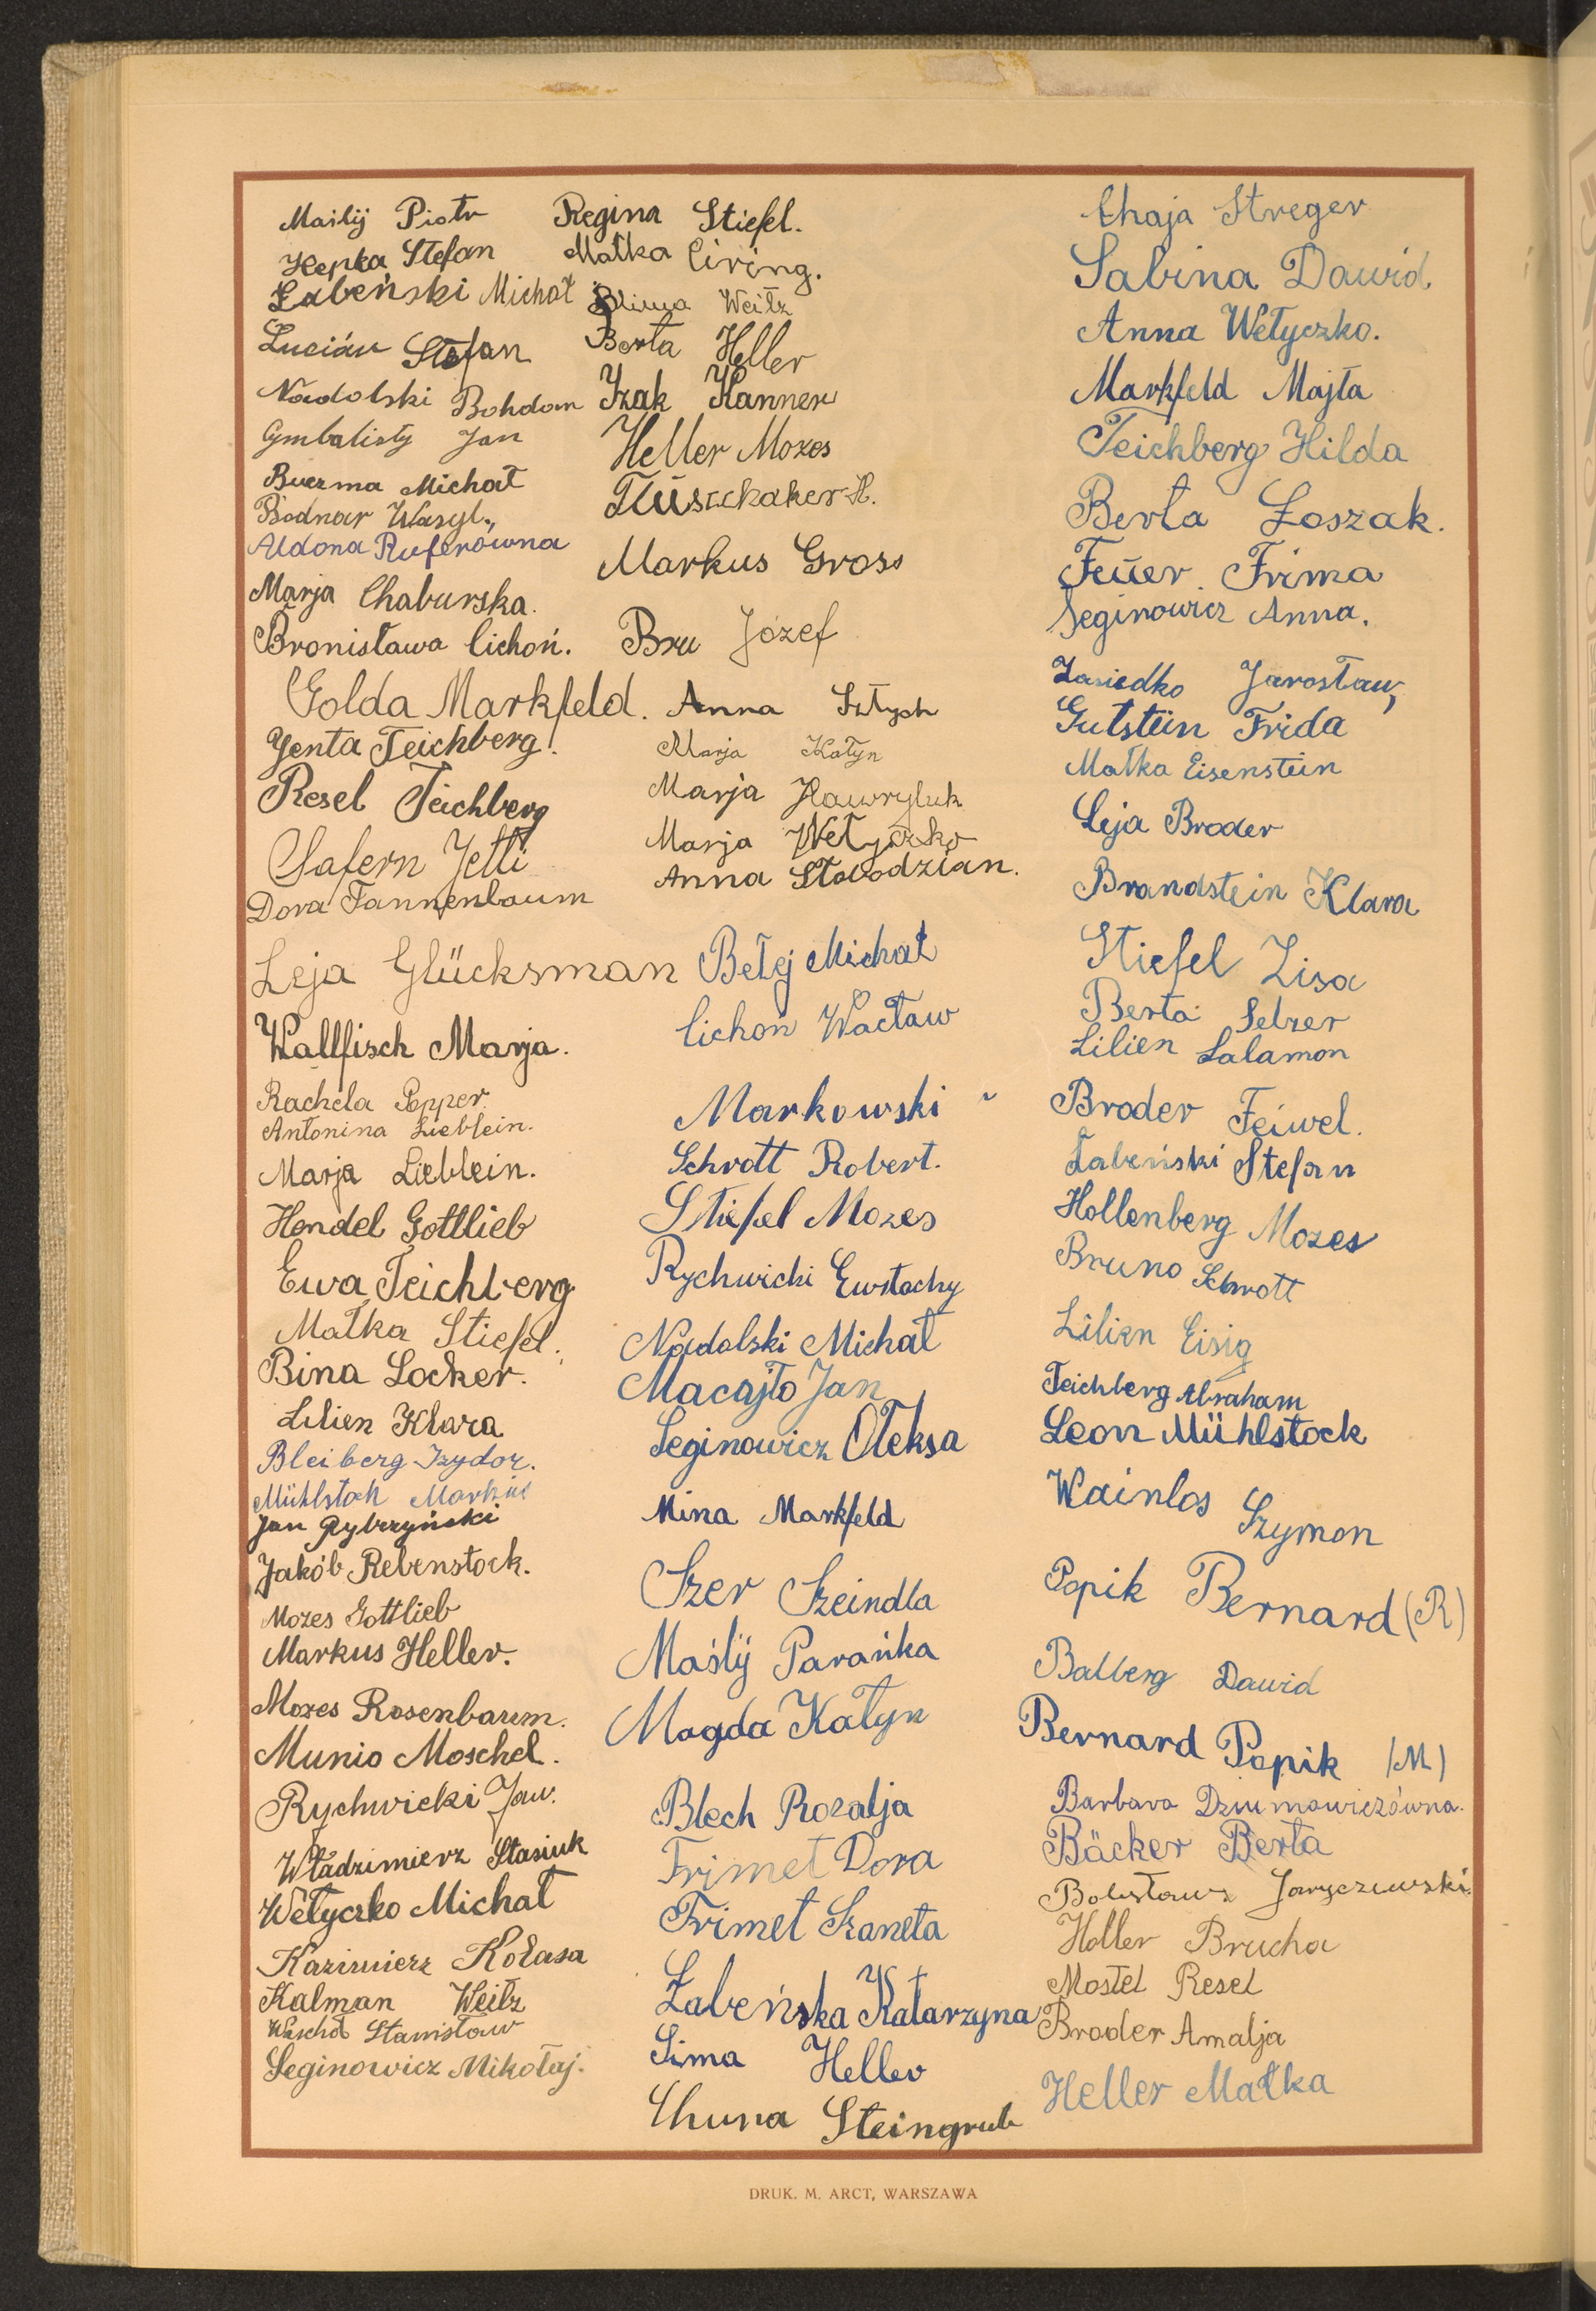 Maślij Piotr
Hepka Stefan
Łabeński Michał
Luciów Stefan
Nadolski Bohdan
Cymbalisty Jan
Buczma Michał
Bodnar Wasyl.,
Aldona Ruferówna
Marja Chaburska.
Bronisława Cichoń.
Golda Markfeld.
Yenta Teichberg.
Resel Teichberg
Safern Jetti
Dora Tannenbaum
Leja Glücksman
Wallfisch Marja.
Rachela Popper.
Antonina Lieblein.
Marja Lieblein.
Hendel Gottlieb
Ewa Teichberg
Małka Stiefel.
Bina Locker.
Lilien Klara
Bleiberg Izydor.
Mühlstock Markus
Jan Rybczyński
Jakób Rebenstock.
Mozes Gottlieb
Markus Heller.
Mozes Rosenbaum.
Munio Moschel.
Rychwicki Jan.
Władzimierz Stasiuk
Wełyczko Michał
Kazimierz Kołasa
Kalman Weitz
Stanisław
Seginowicz Mikołaj.
Regina Stiefel.
Małka Eiring.
Weitz
Berta Heller
Izak Kanner
Heller Mozes
H.
Markus Gross
Bru Józef
Anna Sztych
Marja Kałyn
Marja Hawryluk
Marja Wełyczko
Anna Słobodzian.
Bełej Michał
Cichoń Wacław
Markowski "
Schrott Robert.
Stiefel Mozes
Rychwicki Eustachy
Nadolski Michał
Macajło Jan
Seginowicz Ołeksa
Mina Markfeld
Szer Szeindla
Maślij Parańka
Magda Kałyn
Blech Rozalja
Frimet Dora
Frimet Szaneta
Łabeńska Katarzyna
Sima Heller
Chuna Steingrub
Chaja Streger
Sabina Dawid.
Anna Wełyczko.
Markfeld Majta
Teichberg Hilda
Berta Łoszak.
Feuer Frima
Seginowicz Anna.
Zasiedko Jarosław,
Gutstein Frida
Małka Eisenstein
Leja Broder
Brandstein Klara
Stiefel Lisa
Berta Selzer
Lilien Salamon
Broder Feiwel.
Łabeński Stefan
Hollenberg Mozes
Bruno Schrott
Lilien Eisig
Teichberg Abraham
Leon Mühlstock
Wainlos Szymon
Popik Bernard (R)
Balberg Dawid
Bernard Popik (M)
Barbara Dziumowiczówna.
Bäcker Berta
Bolesław Jaryczewski.
Heller Brucha
Mostel Resel
Broder Amalja
Heller Małka
DRUK. M. ARCT, WARSZAWA